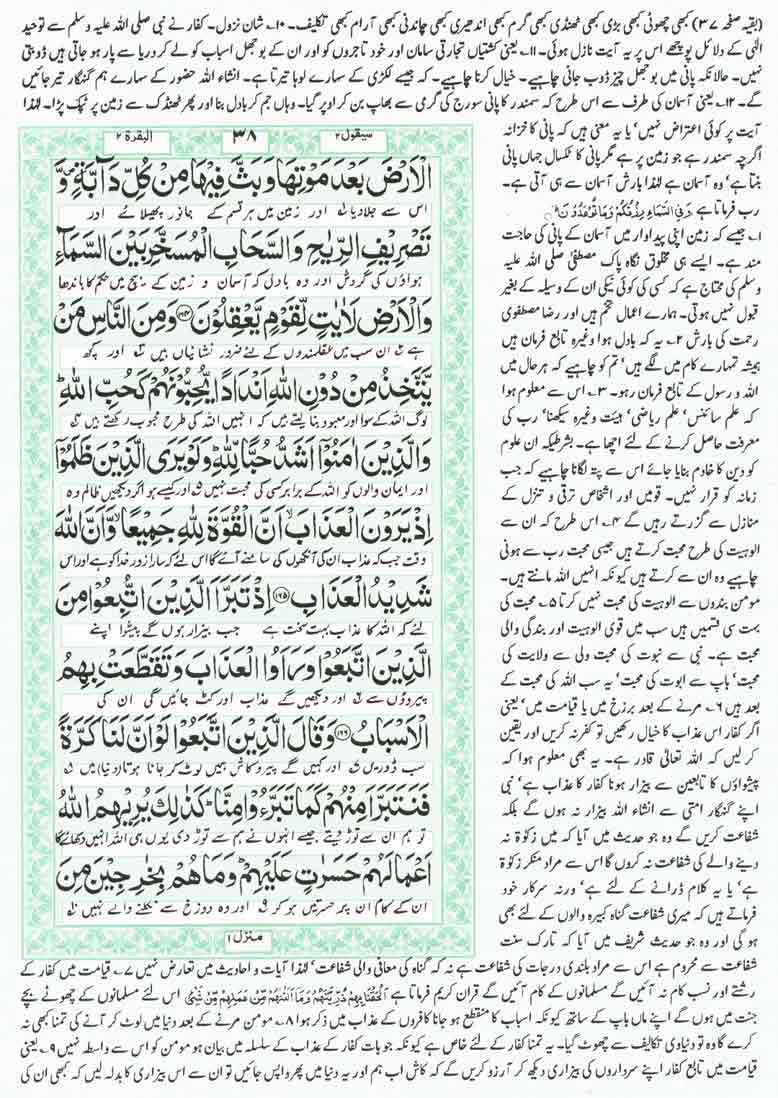 (بقیہ صفحہ ۳۷) کبھی چھوٹی کبھی بڑی کبھی ٹھنڈی کبھی گرم کبھی اندھیری کبھی چاندنی کبھی آرام کبھی تکلیف۔ ۱۰۔ شان نزول۔ کفار نے نبی صلی اللہ علیہ وسلم سے توحید
الٰہی کے دلائل پوچھے اس پر یہ آیت نازل ہوئی۔ ۱۱۔ یعنی کشتیاں تجارتی سامان اور خود تاجروں کو اور ان کے بوجھل اسباب کو لے کر دریا سے پار ہو جاتی ہیں ڈوبتی
نہیں۔ حالانکہ پانی میں بوجھل چیز ڈوب جانی چاہیے۔ خیال کرنا چاہیے۔ کہ جیسے لکڑی کے سہارے لوہا تیرتا ہے۔ انشاء اللہ حضور کے سہارے ہم گنہگار تیر جائیں
گے۔ ۱۲۔ یعنی آسمان کی طرف سے اس طرح کہ سمندر کا پانی سورج کی گرمی سے بھاپ بن کر اوپر گیا۔ وہاں جم کر بادل بنا اور پھر ٹھنڈک سے زمین پر ٹپک پڑا۔ لہٰذا
آیت پر کوئی اعتراض نہیں' یا یہ معنی ہیں کہ پانی کا خزانہ
اگرچہ سمندر ہے جو زمین پر ہے مگر پانی کا ٹکسال جہاں پانی
بنتا ہے' وہ آسمان ہے لہٰذا بارش آسمان سے ہی آتی ہے۔
رب فرماتا ہے وَفِی السَّمَآءِ رِزْقُکُمْ وَمَا تُوْعَدُوْنَ
۱۔ جیسے کہ زمین اپنی پیداوار میں آسمان کے پانی کی حاجت
مند ہے۔ ایسے ہی مخلوق نگاہ پاک مصطفیٰ صلی اللہ علیہ
وسلم کی محتاج ہے کہ کسی کی کوئی نیکی ان کے وسیلہ کے بغیر
قبول نہیں ہوتی۔ ہمارے اعمال تخم ہیں اور رضا مصطفوی
رحمت کی بارش ۲۔ یہ کہ بادل ہوا وغیرہ تابع فرمان ہیں
ہمیشہ تمہارے کام میں لگے ہیں' تم کو چاہیے کہ ہر حال میں
اللہ و رسول کے تابع فرمان رہو۔ ۳۔ اس سے معلوم ہوا
کہ علم سائنس' علم ریاضی' ہیئت وغیرہ سیکھنا' رب کی
معرفت حاصل کرنے کے لئے اچھا ہے۔ بشرطیکہ ان علوم
کو دین کا خادم بنایا جائے اس سے پتہ لگانا چاہیے کہ جب
زمانہ کو قرار نہیں۔ قومیں اور اشخاص ترقی و تنزل کے
منازل سے گزرتے رہیں گے ۴۔ اس طرح کہ ان سے
الوہیت کی طرح محبت کرتے ہیں جیسی محبت رب سے ہونی
چاہیے وہ ان سے کرتے ہیں کیونکہ انہیں اللہ مانتے ہیں۔
مومن بندوں سے الوہیت کی محبت نہیں کرتا ۵۔ محبت کی
بہت سی قسمیں ہیں سب میں قوی الوہیت اور بندگی والی
محبت ہے۔ نبی سے نبوت کی محبت ولی سے ولایت کی
محبت' باپ سے ابوت کی محبت' یہ سب اللہ کی محبت کے
بعد ہیں ۶۔ مرنے کے بعد برزخ میں یا قیامت میں' یعنی
اگر کفار اس عذاب کا خیال رکھیں تو کفر نہ کریں اور یقین
کر لیں کہ اللہ تعالیٰ قادر ہے۔ یہ بھی معلوم ہوا کہ
پیشواؤں کا تابعین سے بیزار ہونا کفار کا عذاب ہے' نبی
اپنے گنہگار امتی سے انشاء اللہ بیزار نہ ہوں گے بلکہ
شفاعت کریں گے وہ جو حدیث میں آیا کہ میں زکوٰۃ نہ
دینے والے کی شفاعت نہ کروں گا اس سے مراد منکر زکوٰۃ
ہے' یا یہ کلام ڈرانے کے لئے ہے' ورنہ سرکار خود
فرماتے ہیں کہ میری شفاعت گناہ کبیرہ والوں کے لئے بھی
ہو گی اور وہ جو حدیث شریف میں آیا کہ تارک سنت
سیقول ۲
۳۸
البقرۃ ۲
الْاَرْضَ بَعْدَ مَوْتِهَا وَبَثَّ فِیْهَا مِنْ كُلِّ دَآبَّةٍ وَّ
اس سے جلا دیا اور زمین میں ہر قسم کے جانور پھیلائے اور
تَصْرِیْفِ الرِّیٰحِ وَالسَّحَابِ الْمُسَخَّرِ بَیْنَ السَّمَآءِ
ہواؤں کی گردش اور وہ بادل کہ آسمان و زمین کے بیچ میں حکم کا باندھا
وَالْاَرْضِ لَاٰیٰتٍ لِّقَوْمٍ یَّعْقِلُوْنَ ۱۶۴ وَمِنَ النَّاسِ مَنْ
ہے ان سب میں عقلمندوں کے لئے ضرور نشانیاں ہیں اور کچھ
یَّتَّخِذُ مِنْ دُوْنِ اللهِ اَنْدَادًا یُّحِبُّوْنَهُمْ كَحُبِّ اللهِ
لوگ اللہ کے سوا اور معبود بنا لیتے ہیں کہ انہیں اللہ کی طرح محبوب رکھتے ہیں
وَالَّذِیْنَ اٰمَنُوْۤا اَشَدُّ حُبًّا لِّلّٰهِ وَلَوْ یَرَی الَّذِیْنَ ظَلَمُوْۤا
اور ایمان والوں کو اللہ کے برابر کسی کی محبت نہیں اور کیسے ہو اگر دیکھیں ظالم وہ
اِذْ یَرَوْنَ الْعَذَابَ اَنَّ الْقُوَّةَ لِلّٰهِ جَمِیْعًا وَّاَنَّ اللهَ
وقت جب کہ عذاب ان کی آنکھوں کے سامنے آئے گا اس لئے کہ سارا زور خدا کو ہے اور اس
شَدِیْدُ الْعَذَابِ ۱۶۵ اِذْ تَبَرَّاَ الَّذِیْنَ اتُّبِعُوْا مِنَ
لئے کہ اللہ کا عذاب بہت سخت ہے جب بیزار ہوں گے پیشوا اپنے
الَّذِیْنَ اتَّبَعُوْا وَرَاَوُا الْعَذَابَ وَتَقَطَّعَتْ بِهِمُ
پیروؤں سے اور دیکھیں گے عذاب اور کٹ جائیں گی ان کی
الْاَسْبَابُ ۱۶۶ وَقَالَ الَّذِیْنَ اتَّبَعُوْا لَوْ اَنَّ لَنَا كَرَّةً
سب ڈوریں اور کہیں گے پیرو کاش ہمیں لوٹ کر جانا ہوتا (دنیا) میں
فَنَتَبَرَّاَ مِنْهُمْ كَمَا تَبَرَّءُوْا مِنَّا كَذٰلِكَ یُرِیْهِمُ اللهُ
تو ہم ان سے توڑ دیتے جیسے انہوں نے ہم سے توڑ دی یوں ہی اللہ انہیں دکھائے گا
اَعْمَالَهُمْ حَسَرٰتٍ عَلَیْهِمْ وَمَا هُمْ بِخٰرِجِیْنَ مِنَ
ان کے کام ان پر حسرتیں ہو کر اور وہ دوزخ سے نکلنے والے نہیں
منزل ۱
شفاعت سے محروم ہے اس سے مراد بلندی درجات کی شفاعت ہے نہ کہ گناہ کی معافی والی شفاعت' لہٰذا آیات و احادیث میں تعارض نہیں ۷۔ قیامت میں کفار کے
رشتے اور نسب کام نہ آئیں گے مسلمانوں کے کام آئیں گے قرآن کریم فرماتا ہے اَلْحَقْنَا بِهِمْ ذُرِّیَّتَهُمْ وَمَآ اَلَتْنٰهُمْ مِّنْ عَمَلِهِمْ مِّنْ شَیْءٍ اس لئے مسلمانوں کے چھوٹے بچے
جنت میں ہوں گے اپنے ماں باپ کے ساتھ کیونکہ اسباب کا منقطع ہو جانا کافروں کے عذاب میں ذکر ہوا ۸۔ مومن مرنے کے بعد دنیا میں لوٹ کر آنے کی تمنا کبھی نہ
کرے گا وہ تو دنیاوی تکالیف سے چھوٹ گیا۔ یہ تمنا کفار کے لئے خاص ہے کیونکہ جو بات کفار کے عذاب کے سلسلہ میں بیان ہو مومن کو اس سے واسطہ نہیں ۹۔ یعنی
قیامت میں تابع کفار اپنے سرداروں کی بیزاری دیکھ کر آرزو کریں گے کہ کاش اب ہم اور یہ دنیا میں پھر واپس جائیں تو ان سے اس بیزاری کا بدلہ لیں کہ کبھی ان کی